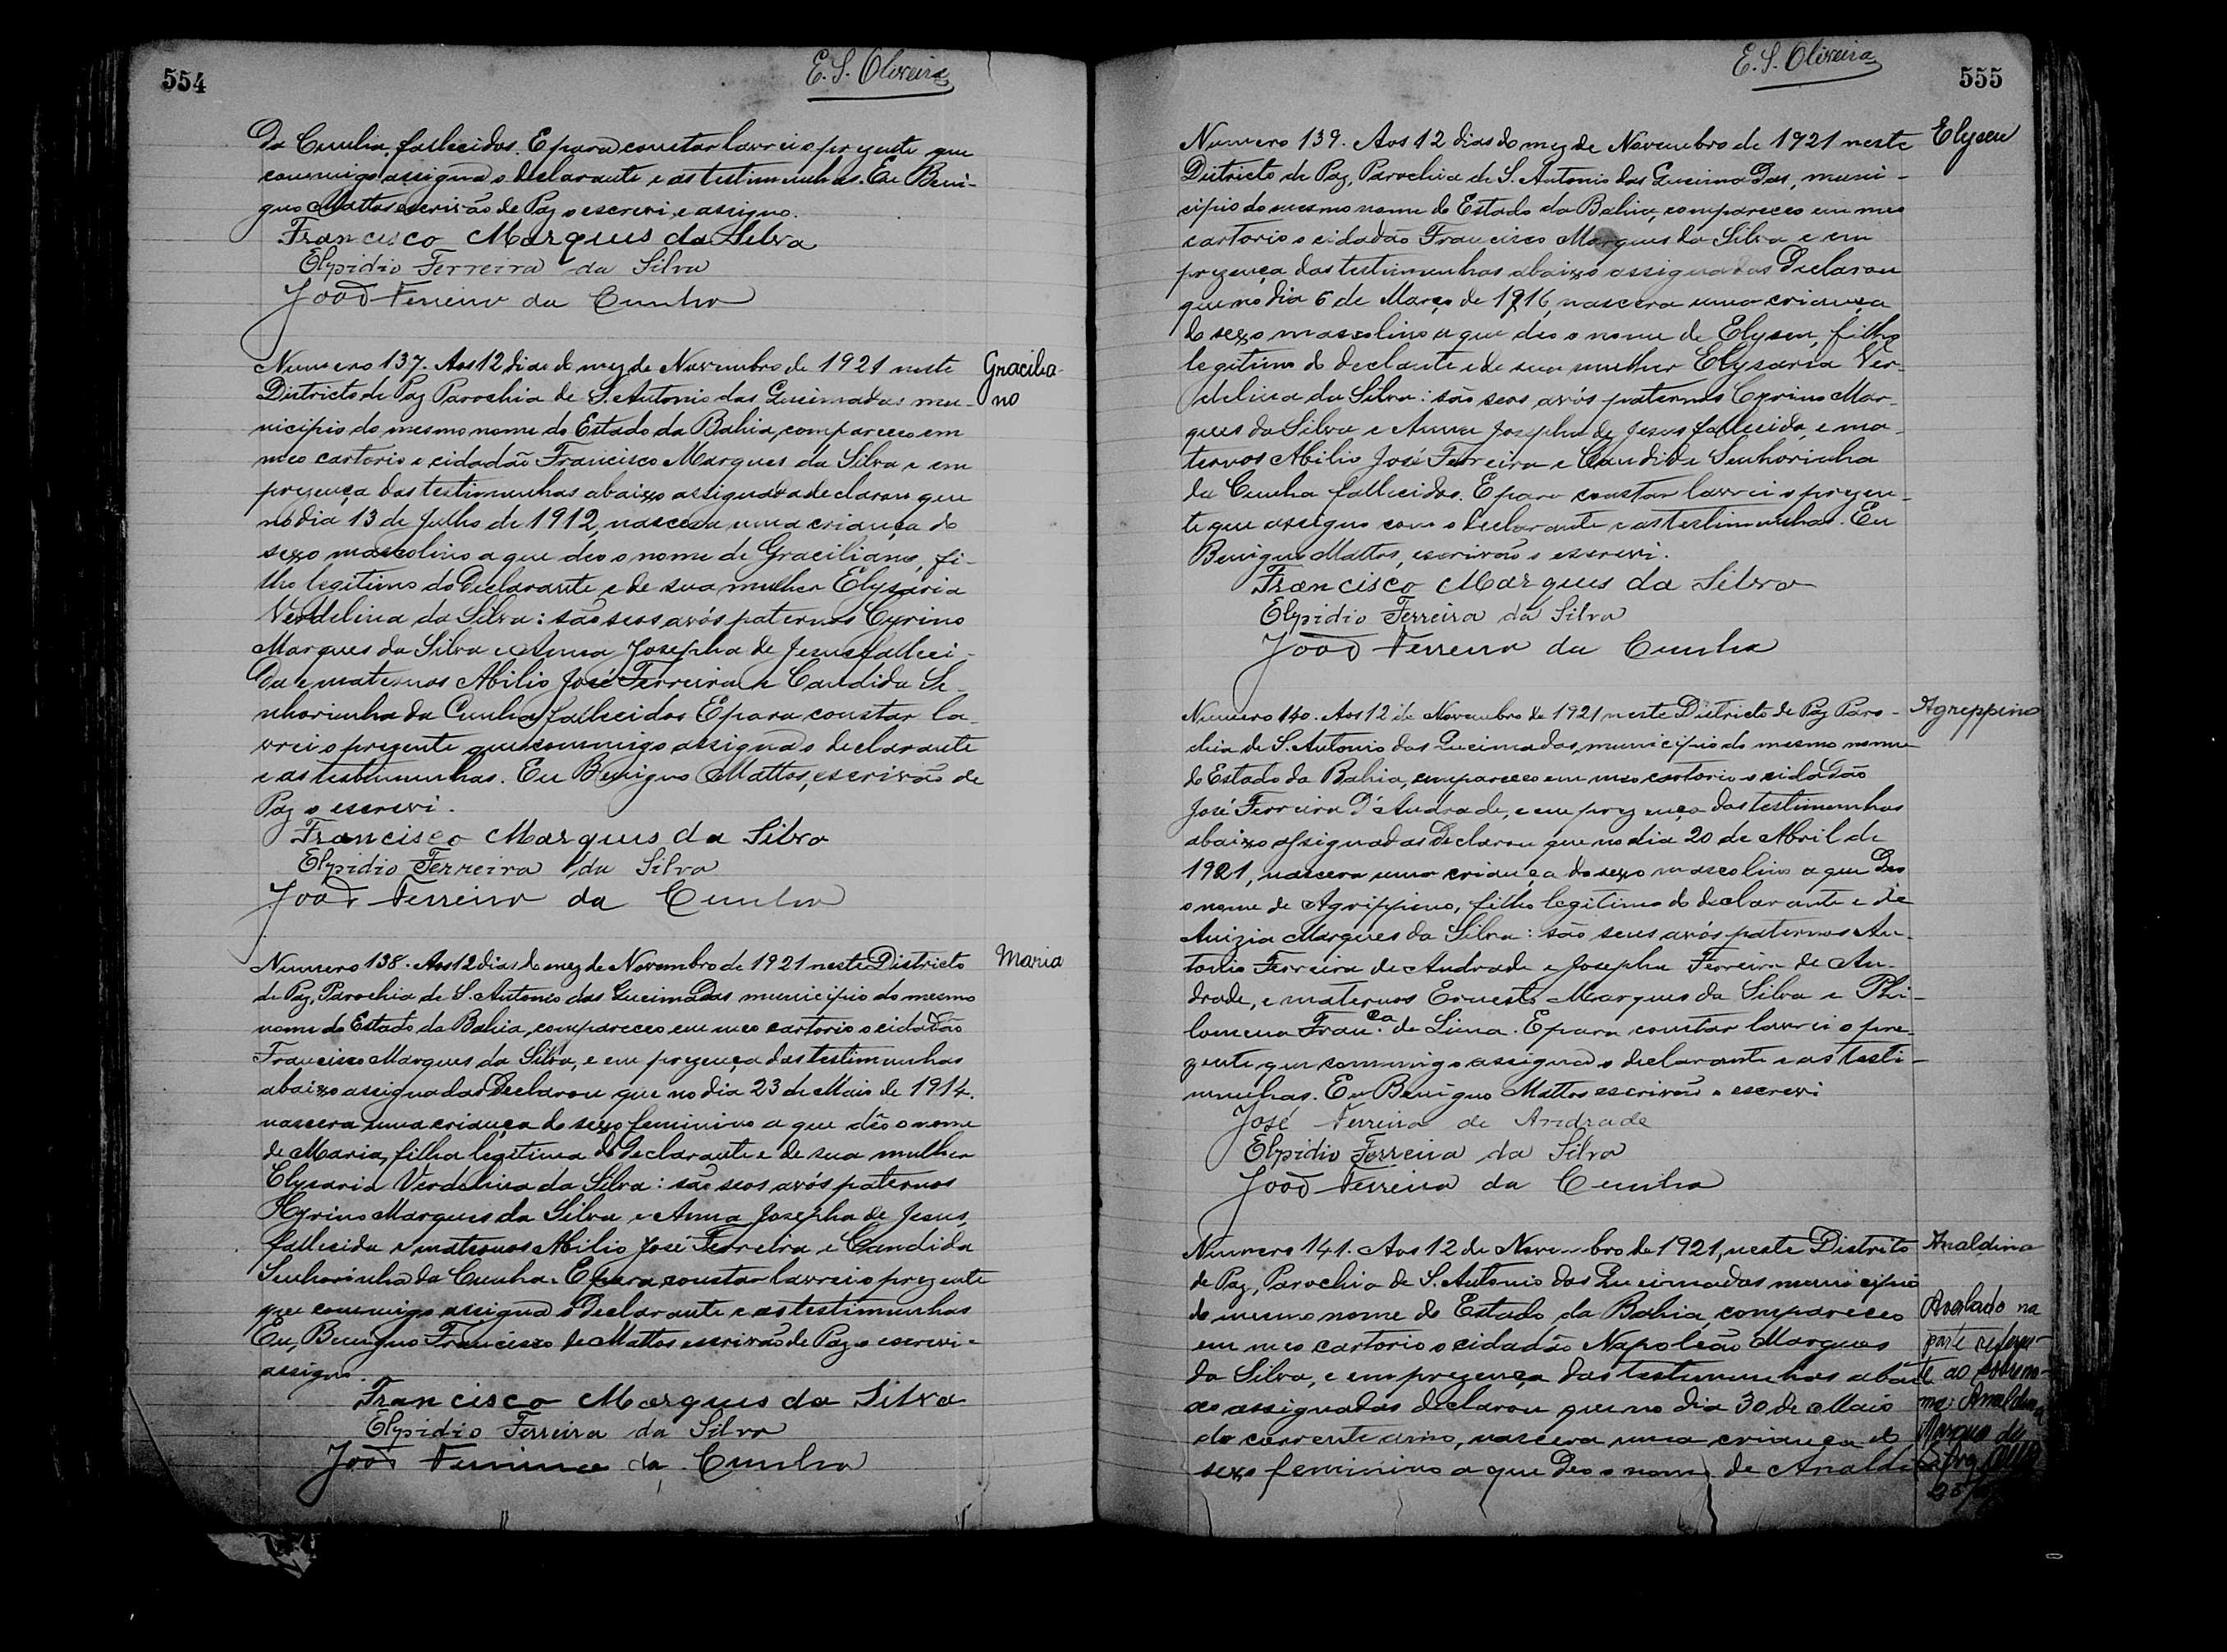 554
E. S. Oliveira
da Cunha, fallecidos. E para constar lavrei o prezente que
commigo assigna o declarante e as testimunhas. Eu Beni-
gno Mattos escrivão de Paz o escrevi e assigno.
Francisco Marques da Silva
Elpidio Ferreira da Silva
João Ferreira da Cunha
Numero 137. Aos 12 dias do mez de Novembro de 1921 neste
Gracilia-
no
Districto de Paz Parochia de S. Antonio das Queimadas mu-
nicipio do mesmo nome do Estado da Bahia, compareceo em
meo cartorio o cidadão Francisco Marques da Silva e em
prezença das testimunhas abaixo assignada declarou que
no dia 13 de Julho de 1912, nascera uma criança do
sexo mascolino a que deo o nome de Graciliano, fi-
lho legitimo do declarante e de sua mulher Elyzaria
Verdelina da Silva: são seos avós paternos Cyrino
Marques da Silva e Anna Josepha de Jesus falleci-
da e maternos Abilio José Ferreira e Candida Se-
nhorinha da Cunha fallecidos E para constar la-
vrei o prezente que commigo assigna o declarante
e as testimunhas. Eu Benigno Mattos, escrivão de
Paz o escrevi.
Francisco Marques da Silva
Elpidio Ferreira da Silva
João Ferreira da Cunha
Numero 138. Aos 12 dias do mez de Novembro de 1921 neste Districto
Maria
de Paz, Parochia de S. Antonio das Queimadas municipio do mesmo
nome do Estado da Bahia, compareceo em meo cartorio o cidadão
Francisco Marques da Silva, e em prezença das testimunhas
abaixo assignadas declarou que no dia 23 de Maio de 1914.
nascera uma criança do sexo feminino a que dêo o nome
de Maria, filha legitima do declarante e de sua mulher
Elysaria Verdelina da Silva: são seos avós paternos
Kyrino Marques da Silva e Anna Josepha de Jesus,
fallecida e maternos Abilio José Ferreira e Candida
Senhorinha da Cunha. E para constar lavrei o prezente
que commigo assigna o declarante e as testimunhas
Eu, Benigno Francisco de Mattos escrivão de Paz o escrevi e
assigno.
Francisco Marques da Silva
Elpidio Ferreira da Silva
João Ferreira da Cunha
E. S. Oliveira
555
Numero 139. Aos 12 dias do mez de Novembro de 1921 neste
Elyseu
Districto de Paz, Parochia de S. Antonio das Queimadas, muni-
cipio do mesmo nome do Estado da Bahia, compareceo em meo
cartorio o cidadão Francisco Marques da Silva e em
prezença das testimunhas abaixo assignadas declarou
que no dia 6 de Março de 1916, nascera uma criança
do sexo mascolino a que deo o nome de Elyseu, filho
legitimo do declarante e de sua mulher Elysaria Ver-
delina da Silva: são seos avós paternos Cyrino Mar-
ques da Silva e Anna Josepha de Jesus fallecida, e ma-
ternos Abilio José Ferreira e Candida Senhorinha
da Cunha fallecidos. E para constar lavrei o prezen-
te que assigno com o declarante e as testimunhas. Eu
Benigno Mattos, escrivão o escrevi.
Francisco Marques da Silva
Elpidio Ferreira da Silva
João Ferreira da Cunha
Numero 140. Aos 12 de Novembro de 1921 neste Districto de Paz Paro-
Agreppino
chia de S. Antonio das Queimadas, municipio do mesmo nome
do Estado da Bahia, compareceo em meo cartorio o cidadão
José Ferreira D'Andrade, e em prezença das testimunhas
abaixo assignadas declarou que no dia 20 de Abril de
1921, nascera uma criança do sexo mascolino a que deo
o nome de Agrippino, filho legitimo do declarante e de
Anizia Marques da Silva: são seus avós paternos An-
tonio Ferreira de Andrade e Josepha Ferreira de An-
drade, e maternos Ernesto Marques da Silva e Phi-
lomena Fran.ca de Lima. E para constar lavrei o pre-
zente que commigo assigna o declarante e as testi-
munhas. Eu Benigno Mattos escrivão o escrevi
José Ferreira de Andrade
Elpidio Ferreira da Silva
João Ferreira da Cunha
Numero 141. Aos 12 de Novembro de 1921, neste Districto
Analdina
de Paz, Parochia de S. Antonio das Queimadas municipio
do mesmo nome do Estado da Bahia, compareceo
em meo cartorio o cidadão Napoleão Marques
da Silva, e em prezença das testimunhas abai-
xo assignadas declarou que no dia 30 de Maio
do corrente anno, nascera uma criança do
sexo feminino a que deo o nome de Analdi
Averbado na
parte referen-
te ao sobreno-
me: Analdina
Marques da
Silva